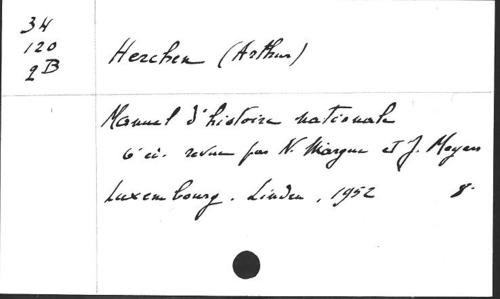 34
120
2B
Herchen (Arthur)
Manuel d'histoire nationale
6e éd. revue par N. Margue et J. Meyers
Luxembourg. Linden, 1952 8°